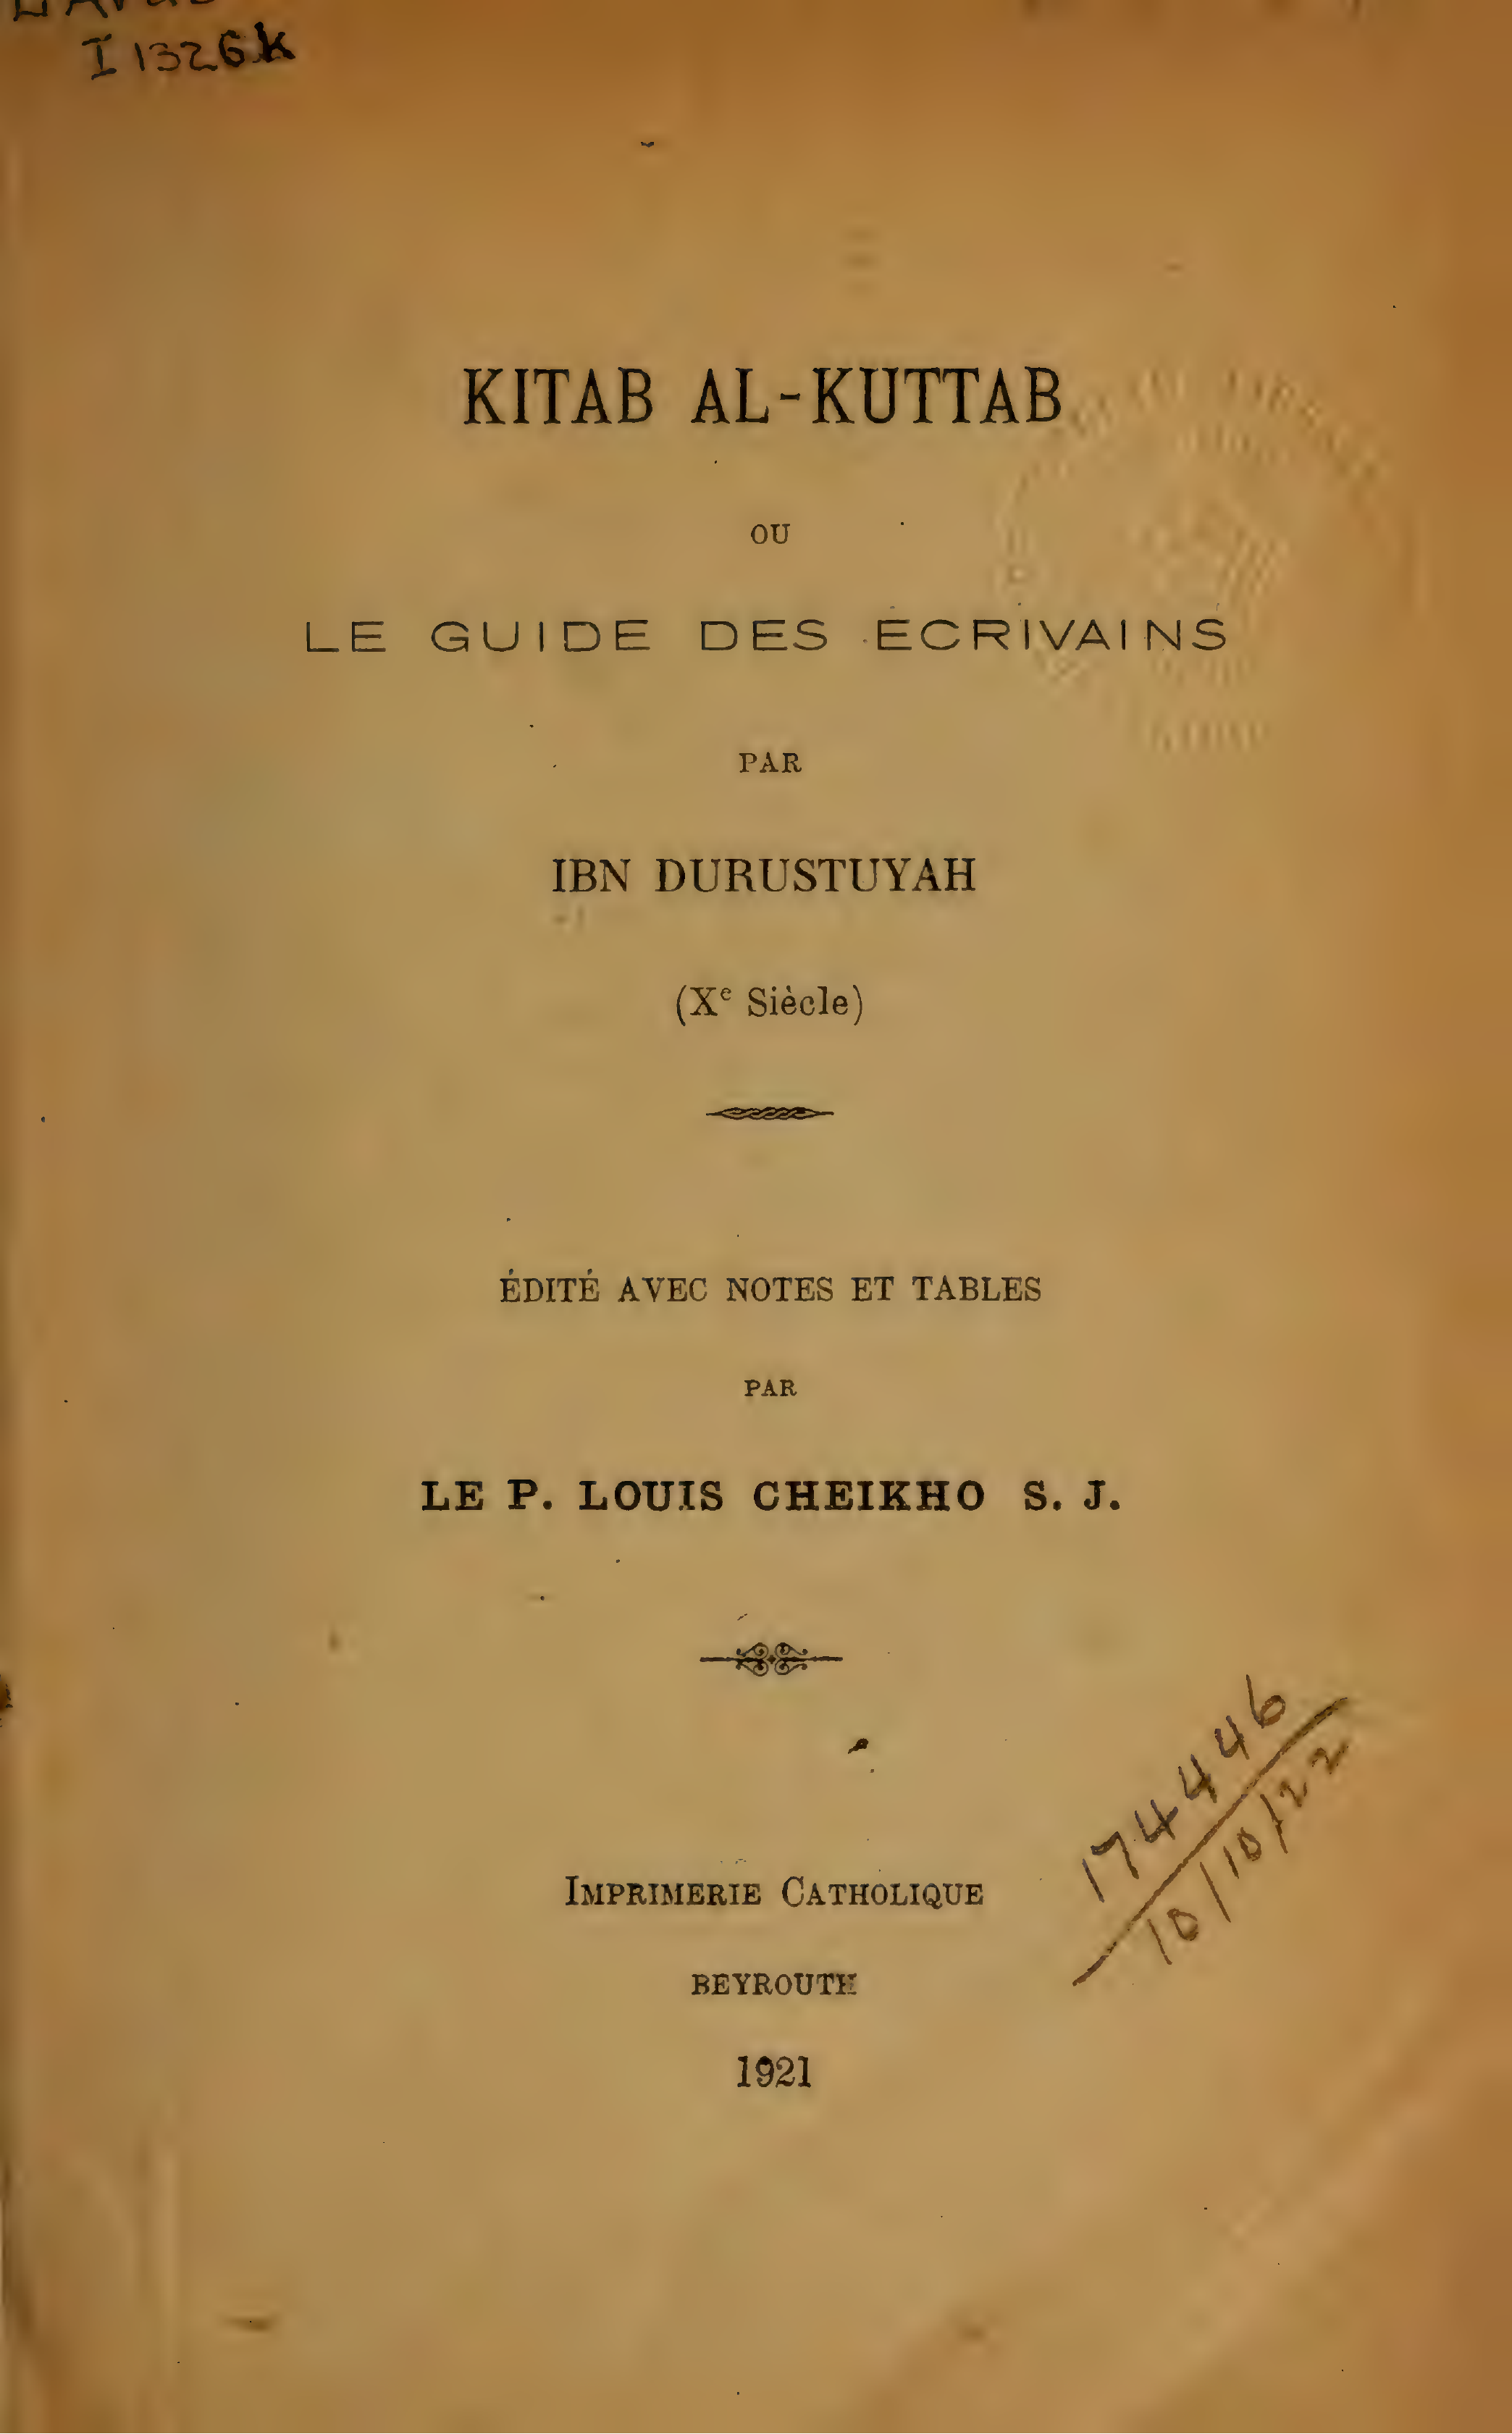 I1326k
KITAB AL-KUTTAB
OU
LE GUIDE DES ÉCRIVAINS
PAR
IBN DURUSTUYAH
(Xe Siècle)
ÉDITÉ AVEC NOTES ET TABLES
PAR
LE P. LOUIS CHEIKHO S. J.
IMPRIMERIE CATHOLIQUE
BEYROUTH
1921
174446
10/10/22